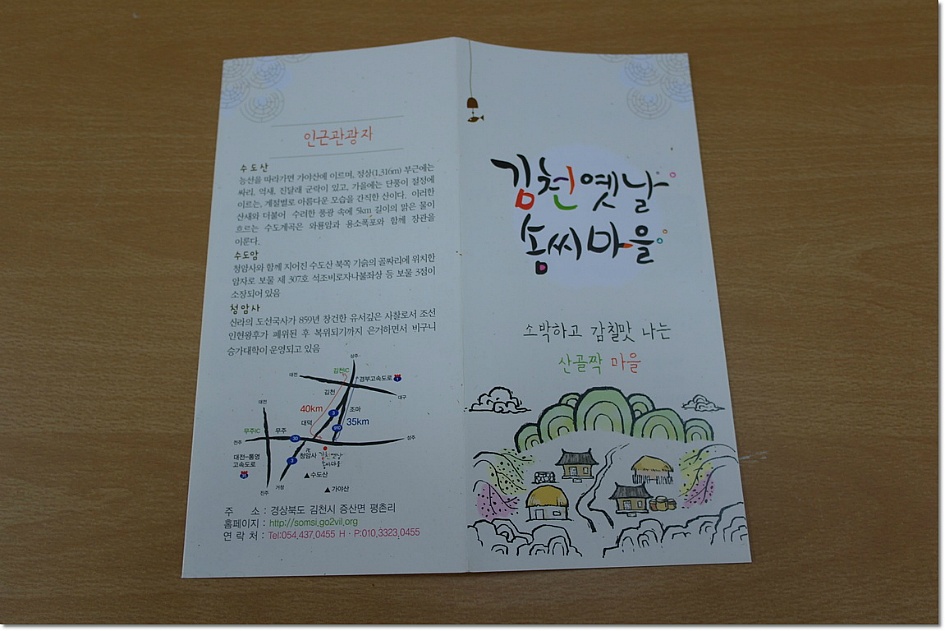 인근관광지
수도산
능선을 따라가면 가야산에 이르며, 정상(1,316m) 부근에는
싸리, 억새, 진달래 군락이 있고, 가을에는 단풍이 절정에
이르는, 계절별로 아름다운 모습을 간직한 산이다. 이러한
산세와 더불어 수려한 풍광 속에 5km 길이의 맑은 물이
흐르는 수도계곡은 와룡암과 용소폭포와 함께 장관을
이룬다.
수도암
청암사와 함께 지어진 수도산 북쪽 기슭의 골짜리에 위치한
암자로 보물 제 307호 석조비로자나불좌상 등 보물 3점이
소장되어 있음
청암사
신라의 도선국사가 859년 창건한 유서깊은 사찰로서 조선
인현왕후가 폐위된 후 복위되기까지 은거하면서 비구니
승가대학이 운영되고 있음
상주
김천IC
경부고속도로
대전
대구
김천
40km
조마
대덕
35km
대전
무주IC
무주
전주
성주
대전~통영
고속도로
청암사
김천 옛날
솜씨마을
수도산
가야산
진주
거창
주 소 : 경상북도 김천시 증산면 평촌리
홈페이지 : http://somsi.go2vil.org
연 락 처 : Tel:054.437.0455 H · P:010.3323.0455
김천옛날
솜씨마을
소박하고 감칠맛 나는
산골짝 마을